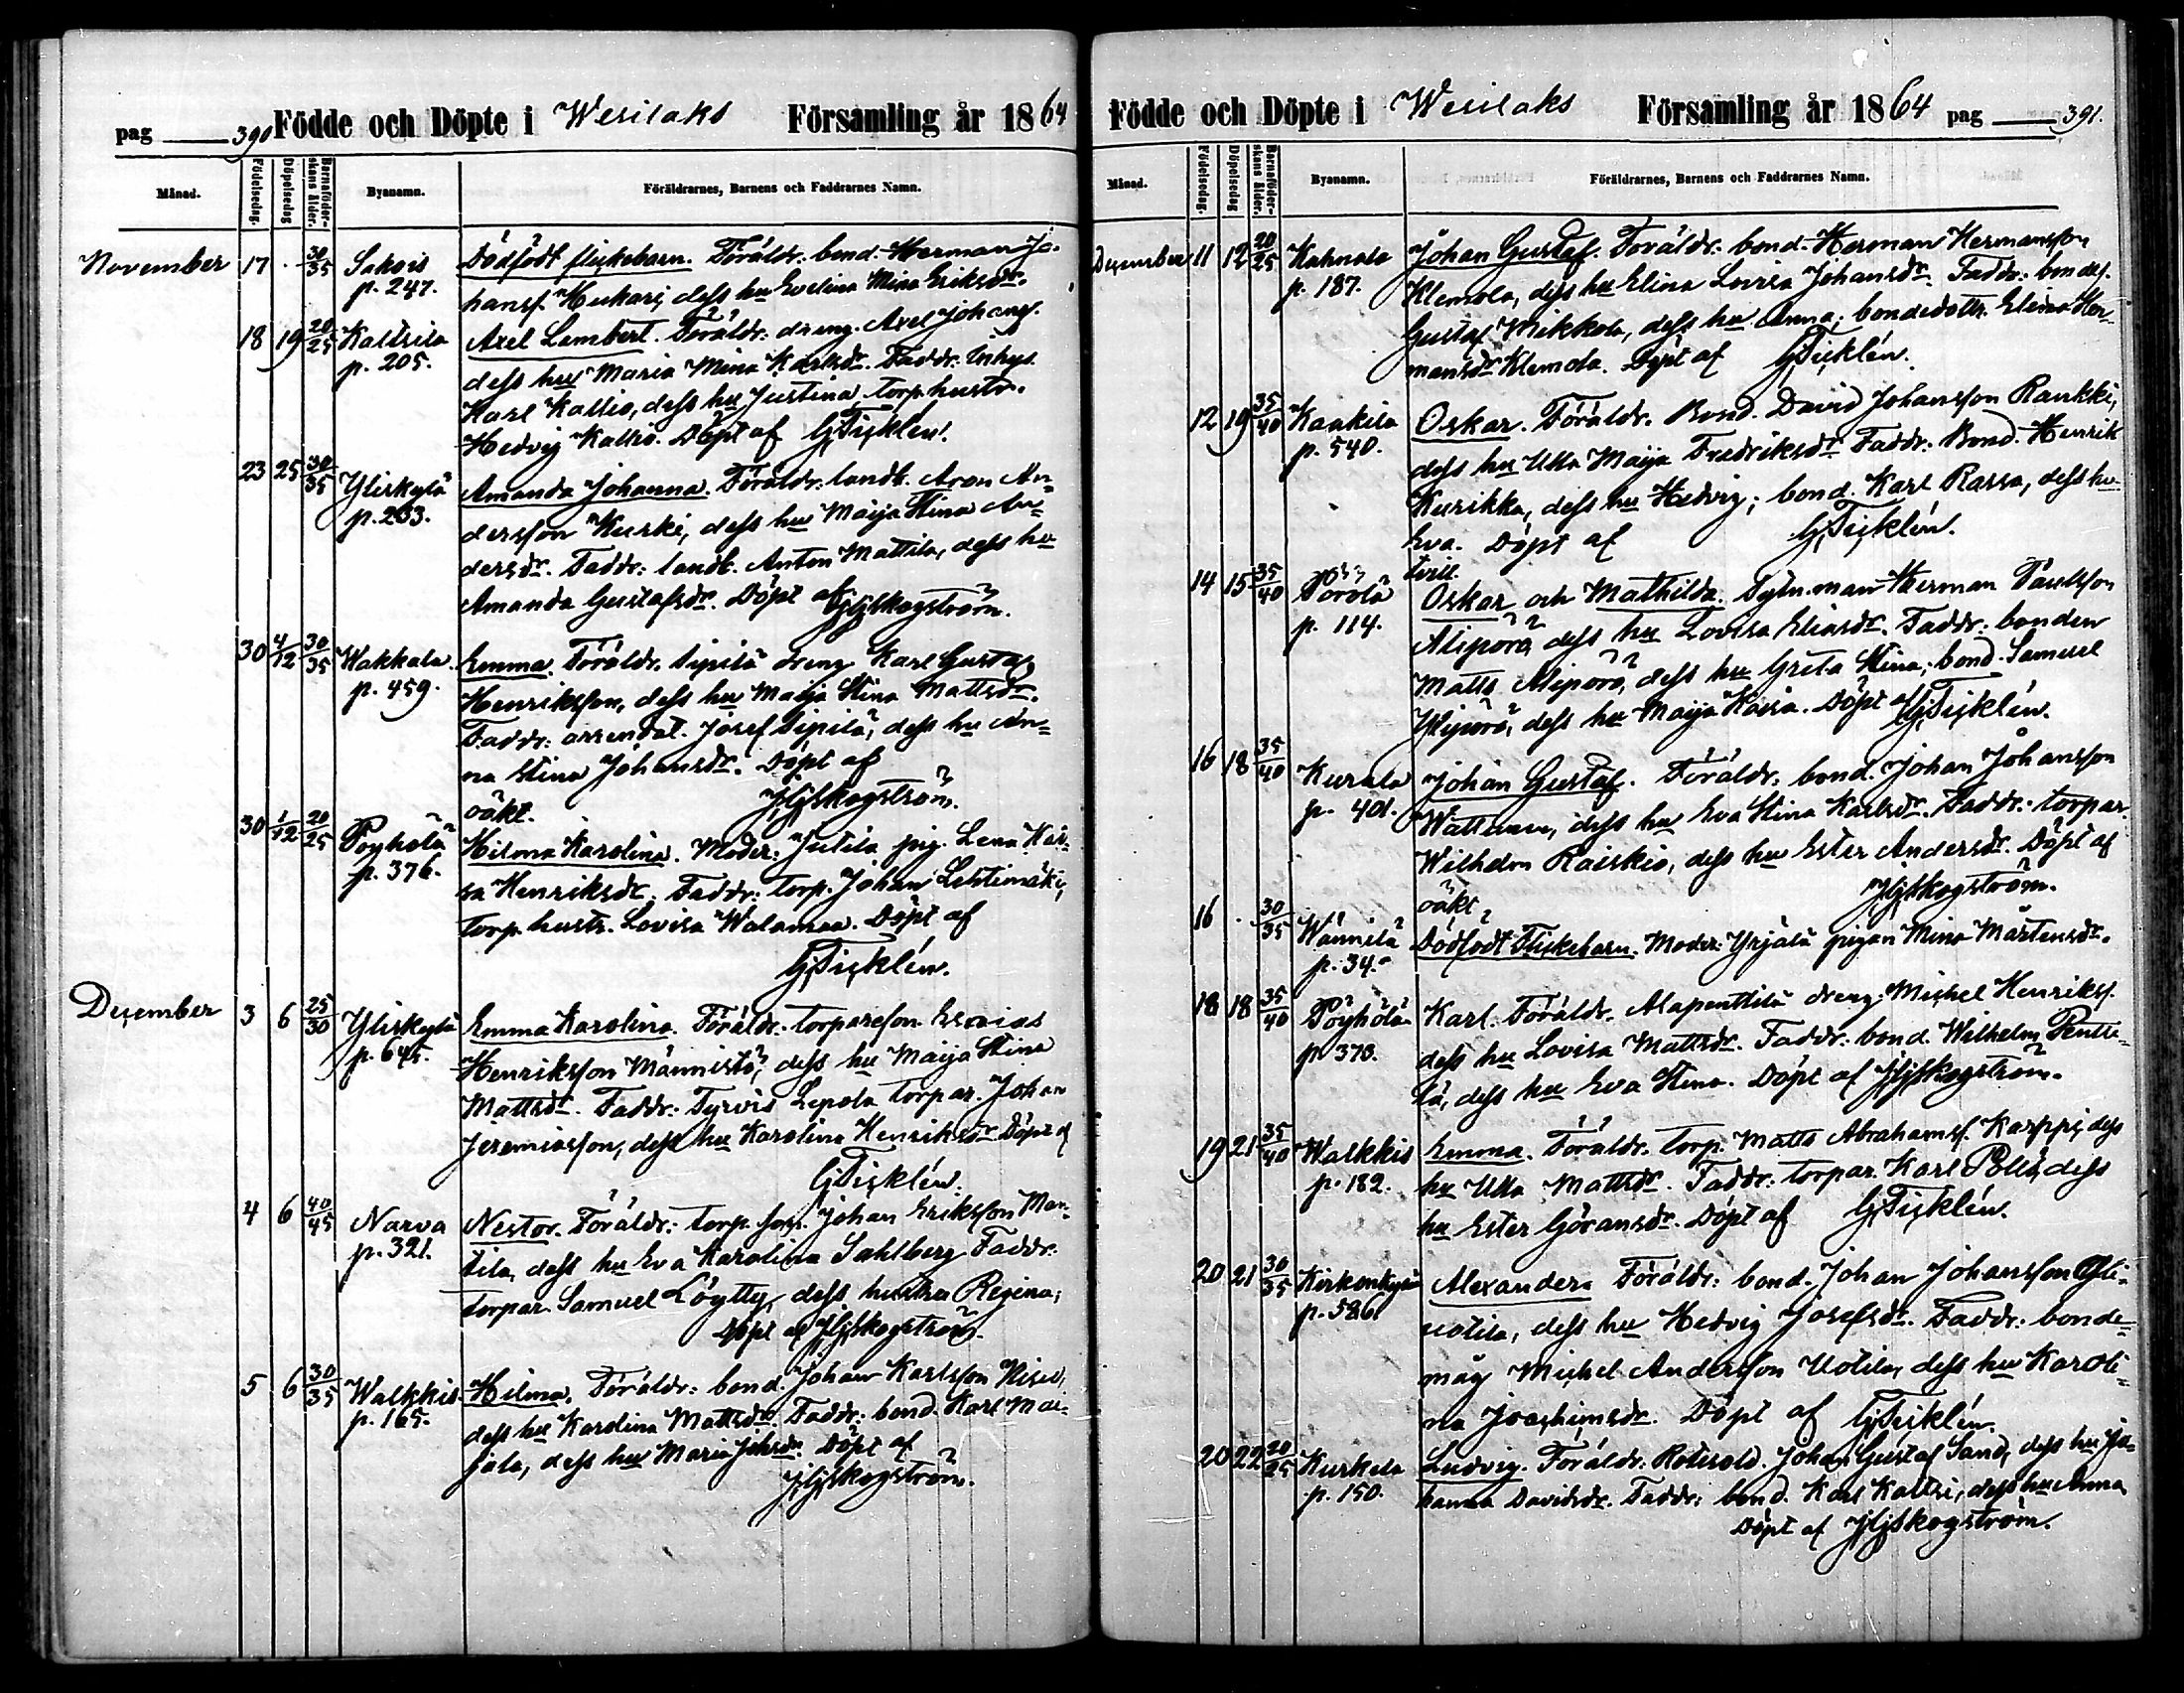 pag 390 Födde och Döpte i Wesilaks Församling år 1864
Månad. Födelsedag. Döpelsedag Barnaföderskans ålder. Byanamn. Föräldrarnes, Barnens och Faddrarnes Namn.
November 17 . 30/35 Sakois Dödfödt flickebarn. Föräldr. bond. Herman Jo-
p. 247. hansf. Hukari, dess hu Evelina Mina Eriksdr.
18 19 20/25 Kaltsila Axel Lambert. Föräldr. dreng Axel Johansf.
p. 205. dess hu Maria Mina Karlsdr. Faddr. Inhys.
Karl Kallio, dess hu Justina, torp. hustr.
Hedvig Kallio. Döpt af GFicklén.
23 25 30/35 Yliskylä Amanda Johanna. Föräldr. landb. Aron An-
p. 233. dersson Kurki, dess hu Maija Stina An-
dersdr. Faddr: landb. Anton Mattila, dess hu
Amanda Gustafsdr. Döpt af JHjSkogström.
30 4/12 30/35 Wakkala. Emma. Föräldr. Sipilä dreng Karl Gustaf
p. 459. Henriksson, dess hu Maija Stina Mattsdr.
Faddr: arrendat. Josef Sipilä, dess hu An-
na Stina Johansdr. Döpt af
oäkt. JHjSkogström.
30 1/12 20/25 Pöyhölä Hilma Karolina. Moder: Jutila pig. Lena Kai-
p. 376. sa Henriksdr. Faddr: torp. Johan Lehtimäki,
torp. hustr. Lovisa Walamaa. Döpt af
GFicklén.
December 3 6 25/30 Yliskylä Emma Karolina. Föräldr. torpareson Esaias
p. 645. Henriksson Männistö, dess hu Maija Stina
Mattsdr. Faddr: Tyrvis Lepola torpar. Johan
Jeremiasson, dess hu Karolina Henriksdr Döpt af
GFicklén.
4 6 40/45 Narva Nestor. Föräldr: torp. son Johan Eriksson Man-
p. 321. tila, dess hu Eva Karolina Sahlberg Faddr.
torpar. Samuel Löytty, dess hustru Regina;
Döpt af JHjSkogström.
5 6 30/35 Walkkis Hilma. Föräldr: bond. Johan Karlsson Hisu,
p. 165. dess hu Karolina Mattsdr. Faddr: bond. Karl Mai-
jala, dess hu Maria Johsdr Döpt af
JHjSkogström.
Födde och Döpte i Wesilaks Församling år 1864 pag 391.
Månad. Födelsedag. Döpelsedag Barnaföderskans ålder. Byanamn. Föräldrarnes, Barnens och Faddrarnes Namn.
December 11 12 20/25 Kahnala Johan Gustaf. Föräldr: bond. Herman Hermansson
p. 187. Klemola, dess hu Elina Lovisa Johansdr. Faddr: bondes.
Gustaf Mikkola, dess hu Anna; bondedottr. Elina Her-
mansdr Klemola. Döpt af GFicklén.
12 19 35/40 Kaakila Oskar. Föräldr. Bond. David Johansson Rankki,
p. 540. dess hu Ulla Maija Fredriksdr Faddr: Bond. Henrik
Kurikka, dess hu Hedvig; bond. Karl Rassa, dess hu
Eva. Döpt af GFicklén.
tvill.
14 15 35/40 Porola Oskar och Mathilda. Sytn.man Herman Paulsson
p. 114. Aliporo, dess hu Lovisa Eliasdr. Faddr: bonden
Matts Aliporo, dess hu Greta Stina; bond. Samuel
Yliporo, dess hu Maija Kaisa. Döpt af GFicklén.
16 18 35/40 Kurala Johan Gustaf. Föräldr. bond. Johan Johansson
p. 401. Wattman, dess hu Eva Stina Karlsdr. Faddr: torpar.
Wilhelm Raiskio, dess hu Ester Andersdr. Döpt af
oäkt JHjSkogström.
16 . 30/35 Wännilä Dödfödt Flickebarn. Moder: Yrjälä pigan Mina Mårtensdr.
p. 34.
18 18 35/40 Pöyhölä Karl. Föräldr. Alapenttilä dreng: Michel Henriksf.
p 373. dess hu Lovisa Mattsdr. Faddr: bond. Wilhelm Pentti-
lä, dess hu Eva Stina. Döpt af JHjSkogström.
19 21 35/40 Walkkis Emma. Föräldr. torp. Matts Abrahamsf. Karppi, dess
p. 182. hu Ulla Mattsdr. Faddr. torpar. Karl Polli, dess
hu Ester Göransdr. Döpt af GFicklén.
20 21 30/35 Kirkonkylä Alexander. Föräldr: bond. Johan Johansson Yli-
p. 586. uotila, dess hu Hedvig Josefsdr. Faddr: bonde-
måg Michel Andersson Uotila, dess hu Karoli-
na Joachimsdr. Döpt af GFicklén.
20 22 20/25 Kurkela Ludvig. Föräldr. Rotesold. Johan Gustaf Sand, dess hu Jo-
p. 150. hanna Davidsdr. Faddr: bond. Karl Kaltsi, dess hu Anna
Döpt af JHjSkogström.